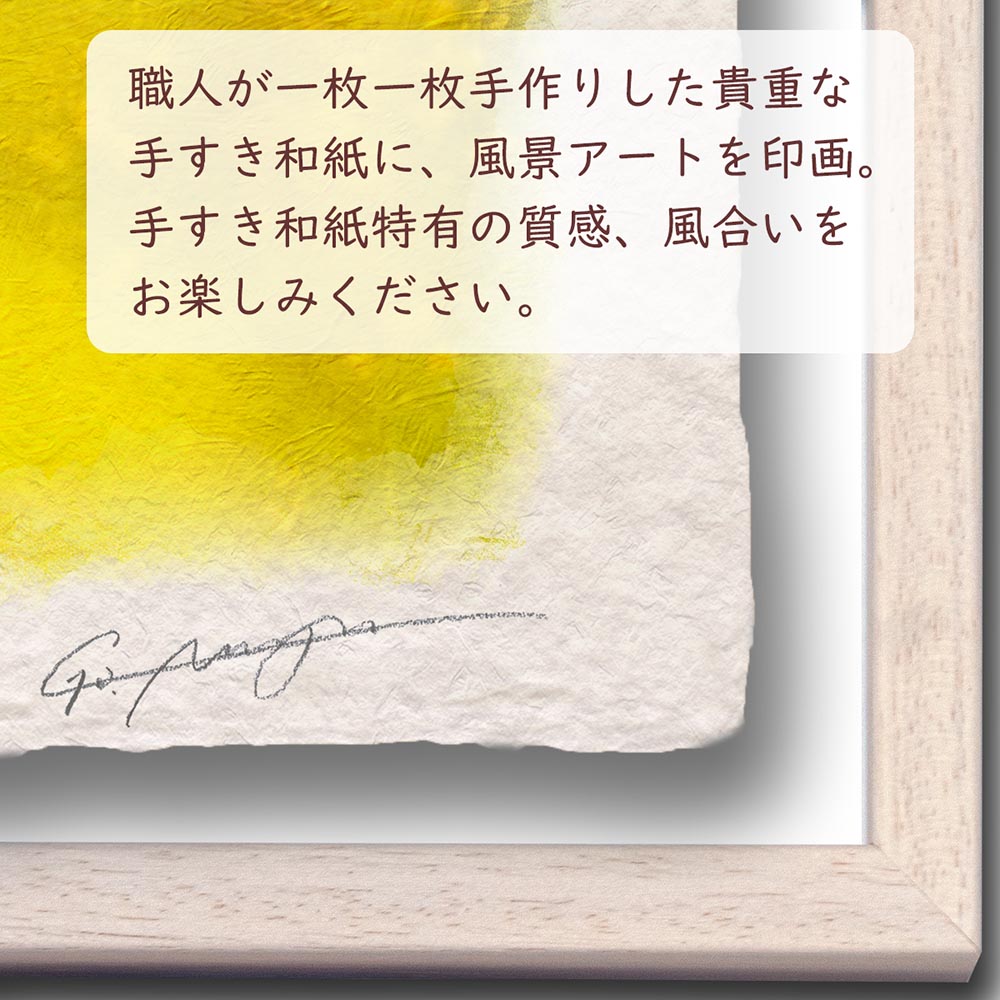 職人が一枚一枚手作りした貴重な
手すき和紙に、風景アートを印画。
手すき和紙特有の質感、風合いを
お楽しみください。